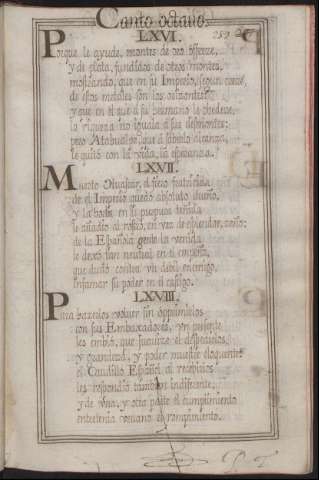 Canto octavo
LXVI.
Porque le ayude, montes de oro ofrece,
y de plata, fundados de otros montes,
mostrando, que en su Imperio, segun crece,
de estos metales son los orizontes:
y que en el que a su hermano le obedece,
la riqueza no iguala a sus desmontes;
pero Atabualpa, que a saberlo alcanza,
le quitò con la vida, la esperanza.
LXVII.
Muerto Huascar, el fiero fratricida
de el Imperio quedò absoluto dueño,
y la borla en su purpura teñida
le añadiò al rostro, en vez de esplendor, ceño:
de la Española gente la venida
le dexò tan neutral en el empeño,
que dudò contra vn debil enemigo,
infamar su poder en el castigo.
LXVIII.
Para hazerlos volver sin oprimirlos
con sus Embaxadores, vn presente
les embiò, que sirviese a despedirlos,
y grandeza, y poder muestre eloquente:
el Caudillo Español al recebirlos
les respondiò tambien indiferente;
y de vna, y otra parte el cumplimiento
entretenia vfano el rompimiento.